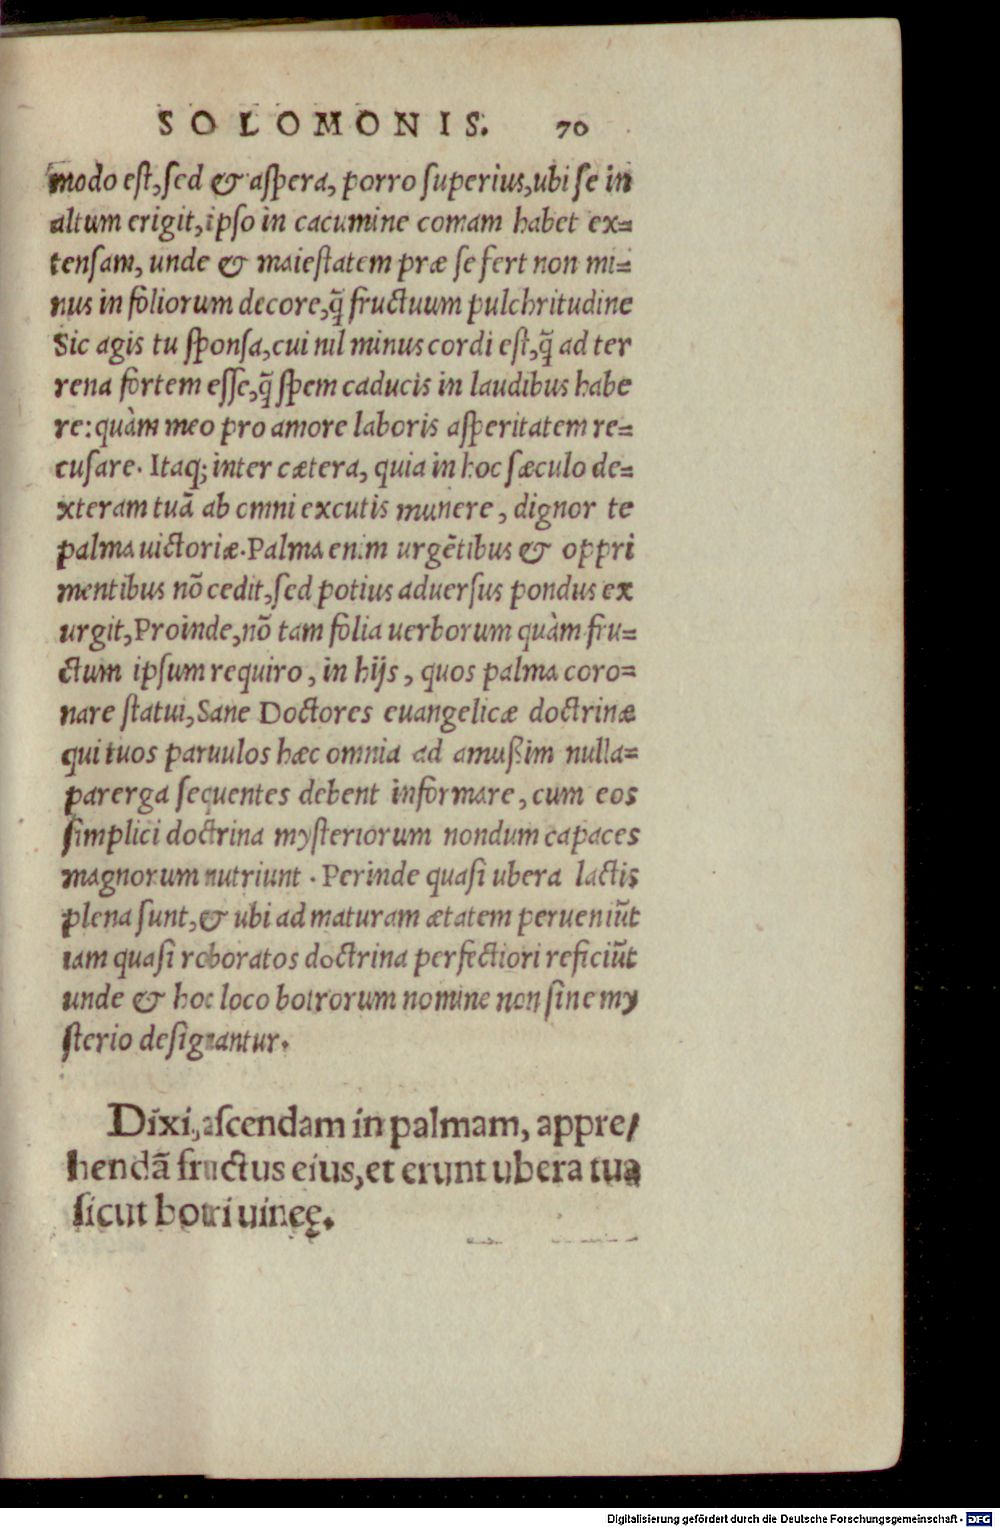 SOLOMONIS. 70
modo est, sed & aspera, porro superius, ubi se in
altum erigit, ipso in cacumine comam habet ex=
tensam, unde & maiestatem præ se fert non mi=
nus in foliorum decore, q̃ fructuum pulchritudine
Sic agis tu sponsa, cui nil minus cordi est, q̃ ad ter
rena fortem esse, q̃ spem caducis in laudibus habe
re: quàm meo pro amore laboris asperitatem re=
cusare. Itaq; inter cætera, quia in hoc sæculo de=
xteram tuã ab omni excutis munere, dignor te
palma uictoriæ. Palma enim urgẽtibus & oppri
mentibus nõ cedit, sed potius aduersus pondus ex
urgit, Proinde, nõ tam folia uerborum quàm fru=
ctum ipsum requiro, in hijs, quos palma coro=
nare statui, Sane Doctores euangelicæ doctrinæ
qui tuos paruulos hæc omnia ad amußim nulla=
parerga sequentes debent informare, cum eos
simplici doctrina mysteriorum nondum capaces
magnorum nutriunt. Perinde quasi ubera lactis
plena sunt, & ubi ad maturam ætatem perueniũt
iam quasi roboratos doctrina perfectiori reficiũt
unde & hoc loco botrorum nomine non sine my
sterio designantur.
Dixi, ascendam in palmam, appre/
hendã fructus eius, et erunt ubera tua
sicut botri uineę.
Digitalisierung gefördert durch die Deutsche Forschungsgemeinschaft - DFG